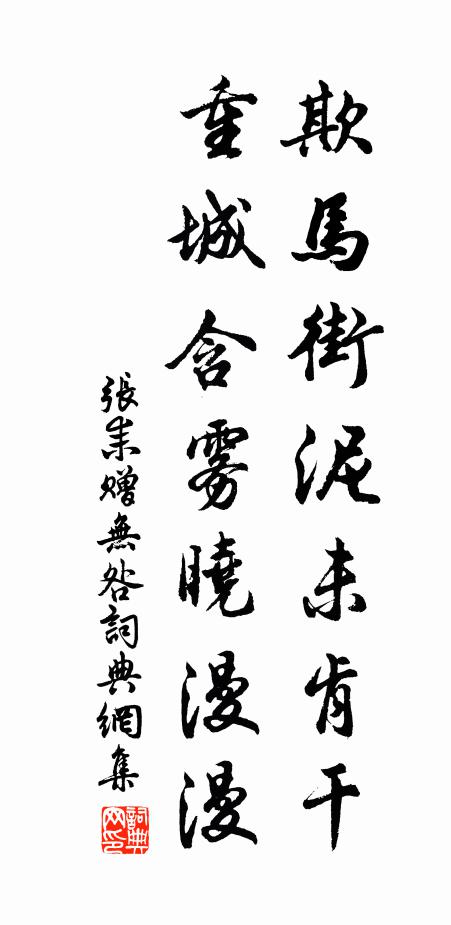 欺馬街泥未肯干
重城含雾曉漫漫
張耒赠無咎詞典網集
詞典
网印